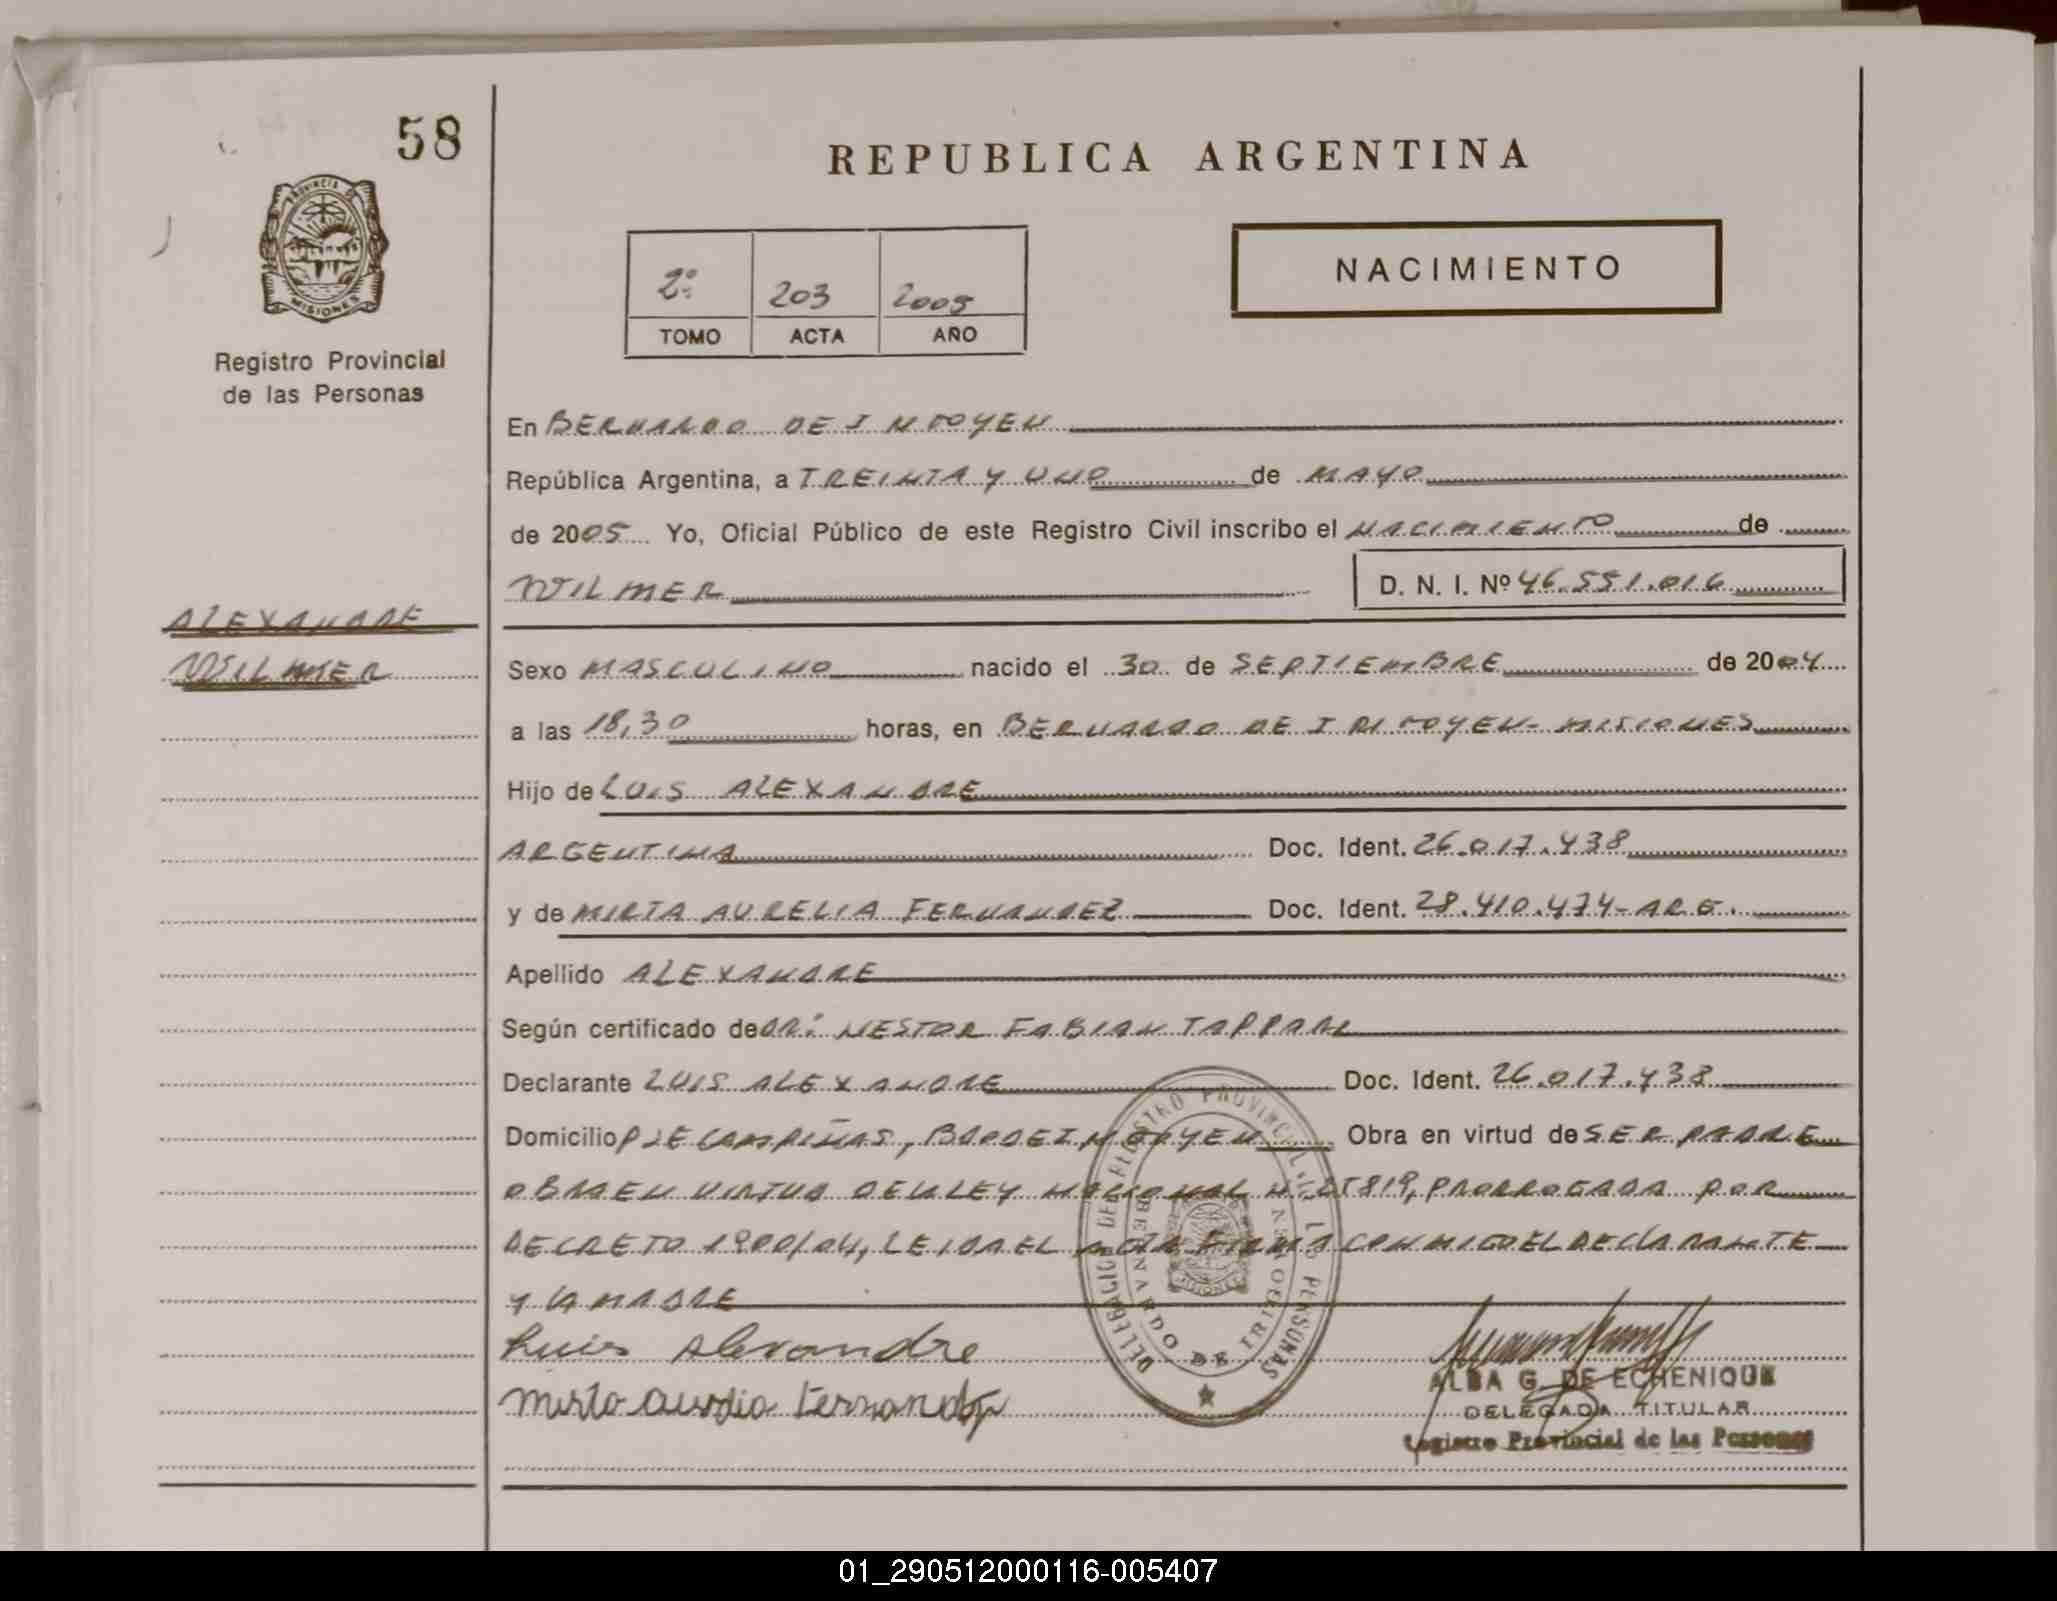 58
PROVINCIA DE
MISIONES
Registro Provincial
de las Personas
REPUBLICA ARGENTINA
2º 203 2005
TOMO ACTA AÑO
NACIMIENTO
En BERNARDO DE IRIGOYEN
República Argentina, a TREINTA Y UNO de MAYO
de 2005 Yo, Oficial Público de este Registro Civil inscribo el NACIMIENTO de
WILMER D. N. I. Nº 46.551.016
ALEXANDRE
WILMER
Sexo MASCULINO nacido el 30 de SEPTIEMBRE de 2004
a las 18,30 horas, en BERNARDO DE IRIGOYEN - MISIONES
Hijo de LUIS ALEXANDRE
ARGENTINA Doc. Ident. 26.017.438
y de MIRTA AURELIA FERNANDEZ Doc. Ident. 28.410.474-ARG.
Apellido ALEXANDRE
Según certificado de DR: NESTOR FABIAN TAPPARI
Declarante LUIS ALEXANDRE Doc. Ident. 26.017.438
Domicilio PJE CAMPIÑAS, BDO DE IRIGOYEN Obra en virtud de SER PADRE
OBRA EN VIRTUD DE LA LEY NACIONAL Nº 25819, PRORROGADA POR
DECRETO 1900/04, LEIDA EL ACTA FIRMA CONMIGO EL DECLARANTE
Y LA MADRE
Luis Alexandre
Mirta Aurelia Fernandez
DELEGACION DEL REGISTRO PROVINCIAL DE LAS PERSONAS
BERNARDO DE IRIGOYEN
ALBA G. DE ECHENIQUE
DELEGADA TITULAR
Registro Provincial de las Personas
01_290512000116-005407